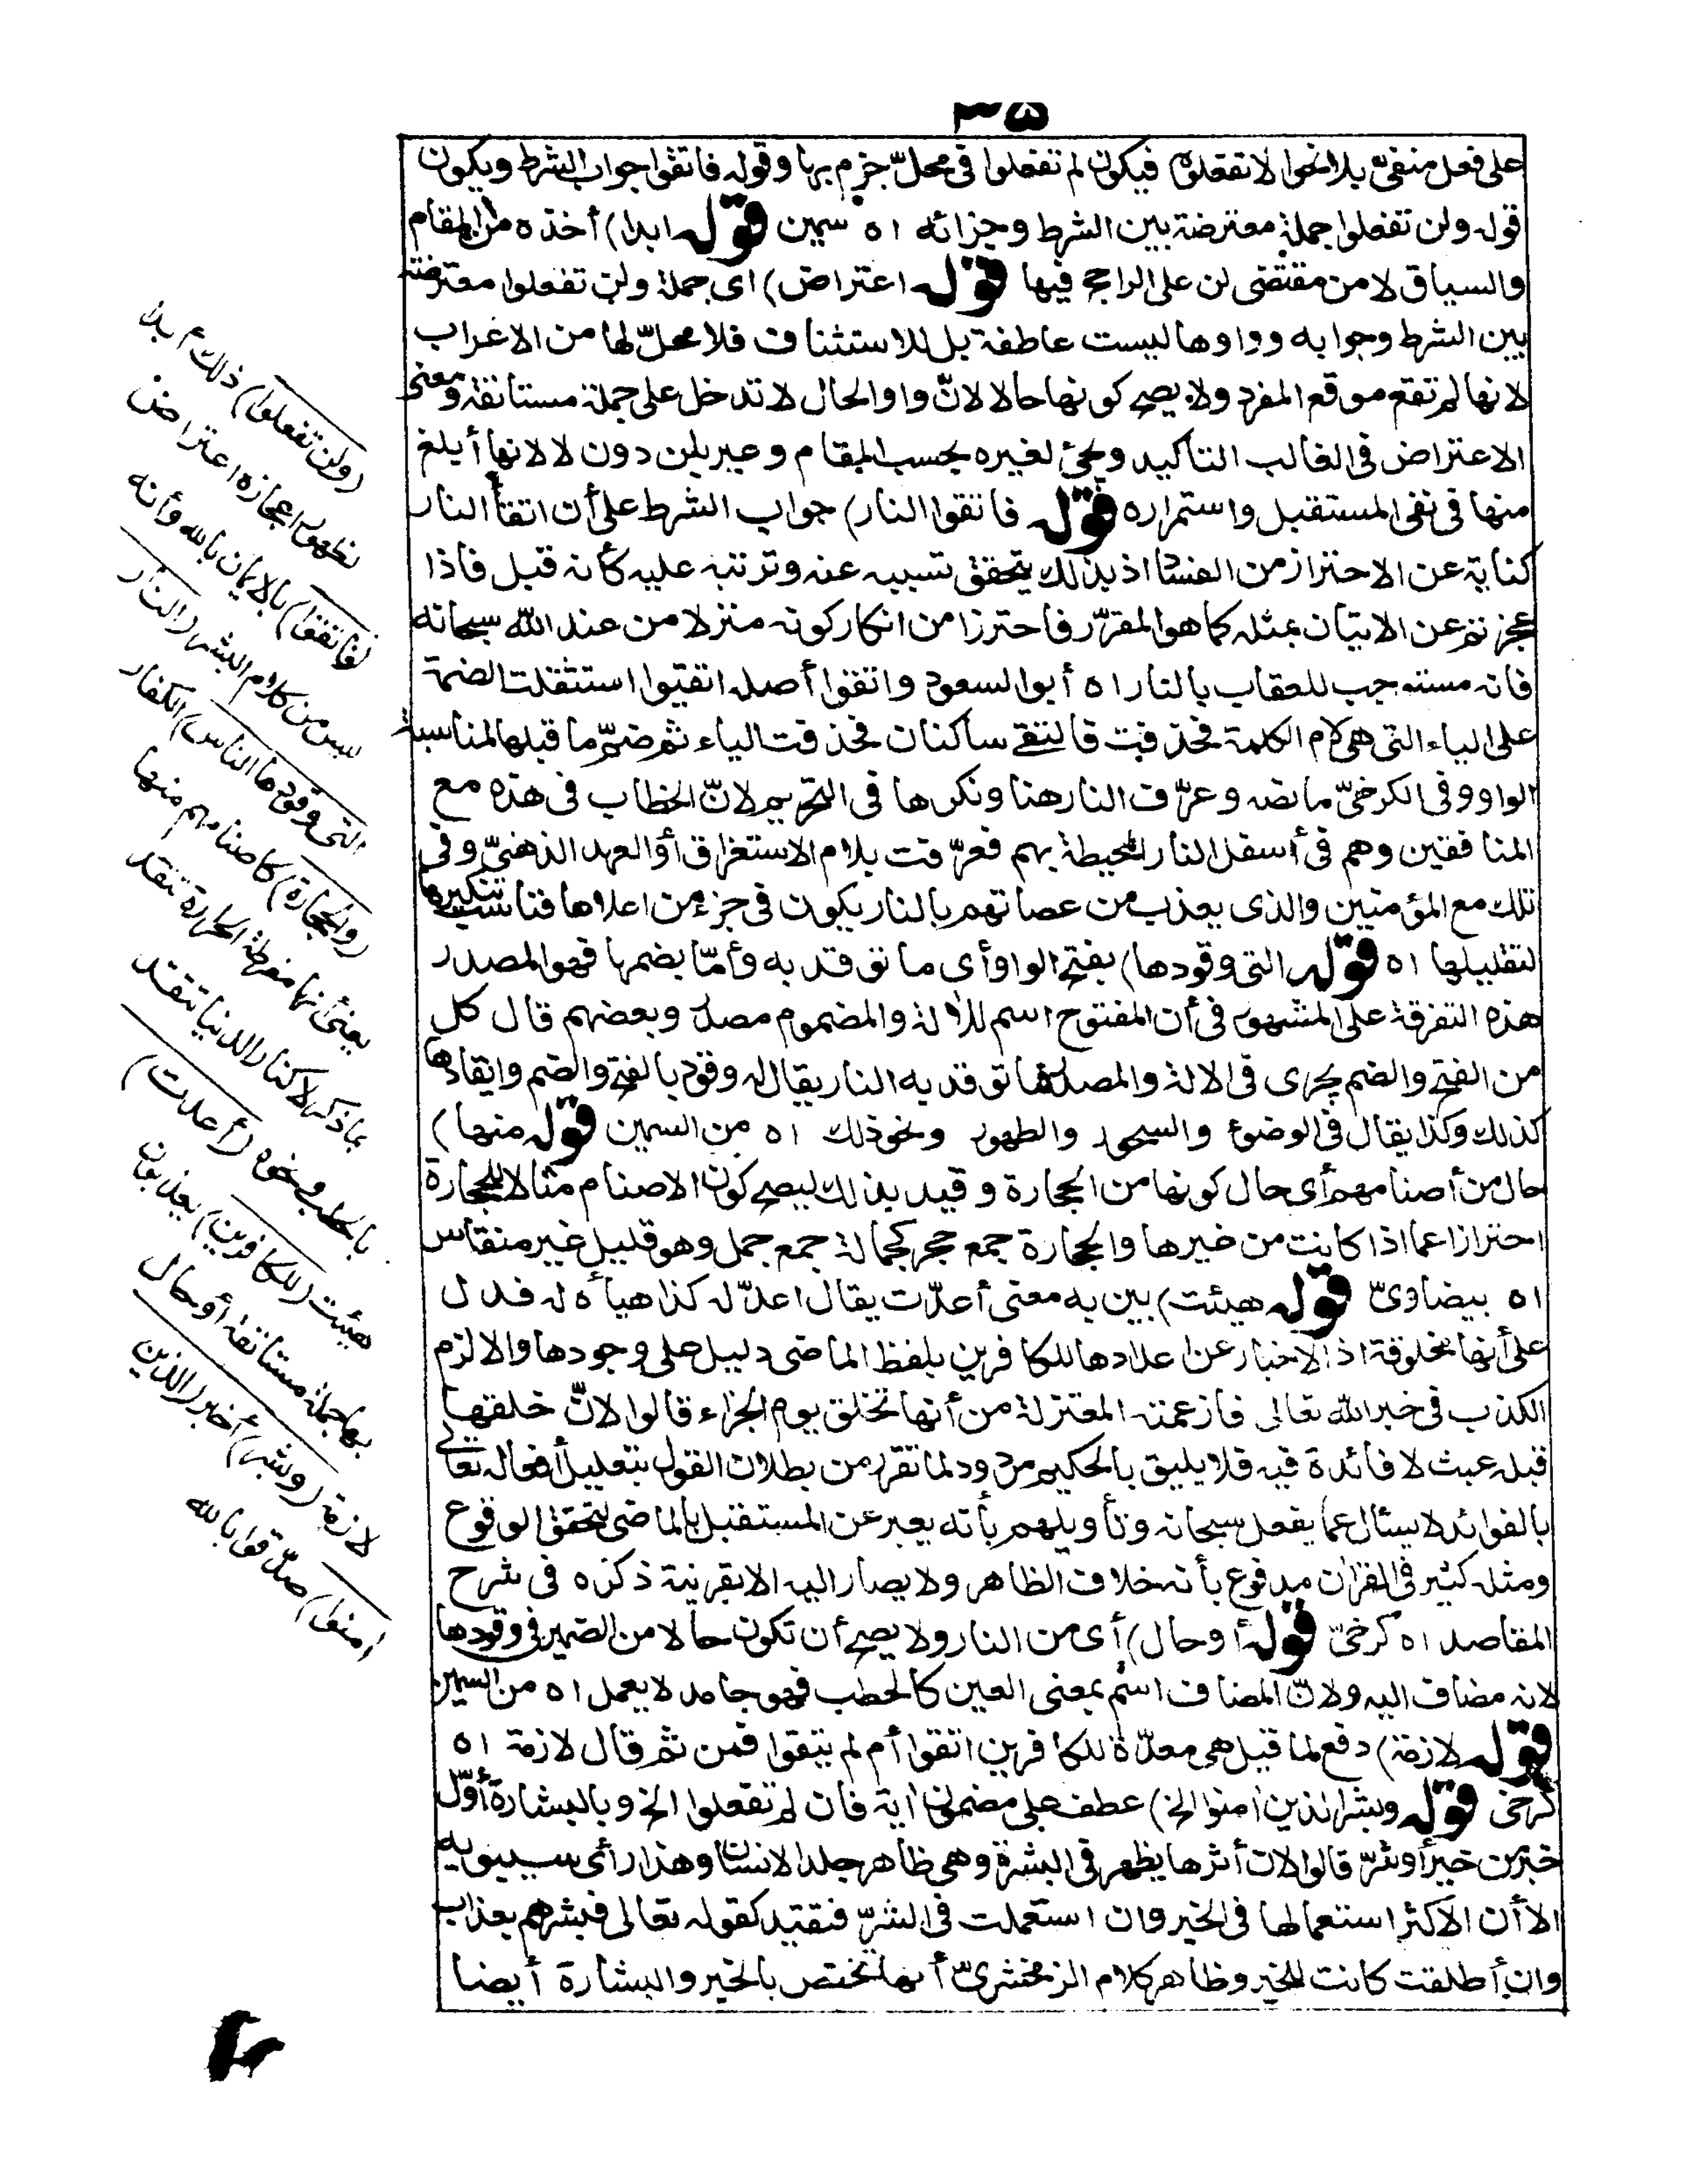 ٣٥
على فعل منفىّ بلا نحو الا تفعلوه فيكون لم تفعلوا فى محلّ جزم بها وقوله فاتقوا جواب الشرط ويكون
قوله ولن تفعلوا جملة معترضة بين الشرط وجزائه اه سمين قوله ابدا) أخذه من المقام
والسياق لا من مقتضى لن على الراجح فيها قوله اعتراض) اى جملة ولن تفعلوا معترضة
بين الشرط وجوابه وواوها ليست عاطفة بل للاستئناف فلا محلّ لها من الاعراب
لانها لم تقع موقع المفرد ولا يصح كونها حالا لانّ واو الحال لا تدخل على جملة مستانفة ومعنى
الاعتراض فى الغالب التاكيد ويجئ لغيره بحسب المقام وعبر بلن دون لا لانها أبلغ
منها فى نفى المستقبل واستمراره قوله فاتقوا النار) جواب الشرط على أن اتقأ النار
كناية عن الاحتراز من الفساد اذ بذلك يتحقق تسببه عنه وترتبه عليه كأنه قيل فاذا
عجزتم عن الاتيان بمثله كما هو المقرّر فاحترزا من انكار كونه منزلا من عند الله سبحانه
فانه مستوجب للعقاب بالنار اه أبو السعود واتقوا أصله اتقيوا استثقلت الضمة
على الياء التى هى لام الكلمة فحذفت فالتقى ساكنان فحذفت الياء ثم ضمّ ما قبلها لمناسبة
الواو وفى الكرخىّ ما نصه وعرّف النار هنا ونكرها فى التحريم لانّ الخطاب فى هذه مع
المنافقين وهم فى أسفل النار المحيطة بهم فعرّفت بلام الاستغراق أو العهد الذهنىّ وفى
تلك مع المؤمنين والذى يعذب من عصاتهم بالنار يكون فى جزء من اعلاها فناسب تنكيرها
لتقليلها اه قوله التى وقودها) بفتح الواو أى ما توقد به وأمّا بضمها فهو المصدر
هذه التفرقة على المشهور فى أن المفتوح اسم للألة والمضموم مصدر وبعضهم قال كل
من الفتح والضم يجرى فى الالة والمصدر فما توقد به النار يقال له وقود بالفتح والضم وايقادها
كذلك وكذا يقال فى الوضوء والسحور والطهور ونحو ذلك اه من السمين قوله منها)
حال من أصنامهم أى حال كونها من الحجارة وقيد بذلك ليصح كون الاصنام مثالا للحجارة
احترازا عما اذا كانت من غيرها والحجارة جمع حجر كجمالة جمع جمل وهو قليل غير منقاس
اه بيضاوىّ قوله هيئت) بين به معنى أعدّت يقال اعدّ له كذا هيأه له فدل
على أنها مخلوقة اذ الاخبار عن اعدادها للكافرين بلفظ الماضى دليل على وجودها والا لزم
الكذب فى خبر الله تعالى فما زعمته المعتزلة من أنها تخلق يوم الجزاء قالوا لانّ خلقها
قبله عبث لا فائدة فيه فلا يليق بالحكيم مردود لما تقرر من بطلان القول بتعليل أفعاله تعالى
بالفوائد لا يسئال عما يفعل سبحانه وتأويلهم بأنه يعبر عن المستقبل بالماضى لتحقق الوقوع
ومثله كثير فى القرأن مدفوع بأنه خلاف الظاهر ولا يصار اليه الا بقرينة ذكره فى شرح
المقاصد اه كرخىّ قوله أوحال) أى من النار ولا يصح أن تكون حالا من الضمير فى وقودها
لانه مضاف اليه ولانّ المضاف اسم بمعنى العين كالحطب فهو جامد لا يعمل اه من السمين
قوله لازمة) دفع لما قيل هى معدّة للكافرين اتقوا أم لم يتقوا فمن ثم قال لازمة اه
كرخى قوله وبشر الذين أمنوا الخ) عطف على مضمون أية فان لم تفعلوا الخ والبشارة أوّل
خبر من خير أو شرّ قالوا لان أثرها يظهر فى البشرة وهى ظاهر جلد الانسان وهذا رأى سيبويه
الا أن الاكثر استعمالها فى الخير وان استعملت فى الشرّ فبقيد كقوله تعالى فبشرهم بعذاب
وان أطلقت كانت للخير وظاهر كلام الزمخشرىّ أنها تختص بالخير والبشارة أيضا
(ولن تفعلوا) ذلك أبدا
لظهور اعجازه اعتراض
(فاتقوا) بالايمان بالله وأنه
ليس من كلام البشر (النار
التى وقودها الناس) الكفار
(والحجارة) كاصنامهم منها
يعنى أنها مفرطة الحرارة تتقد
بما ذكر لا كنار الدنيا تتقد
بالحطب ونحوه (أعدت)
هيئت (للكافرين) يعذبون
بها جملة مستانفة أو حال
لازمة (وبشر) أخبر (الذين
أمنوا) صدّقوا بالله